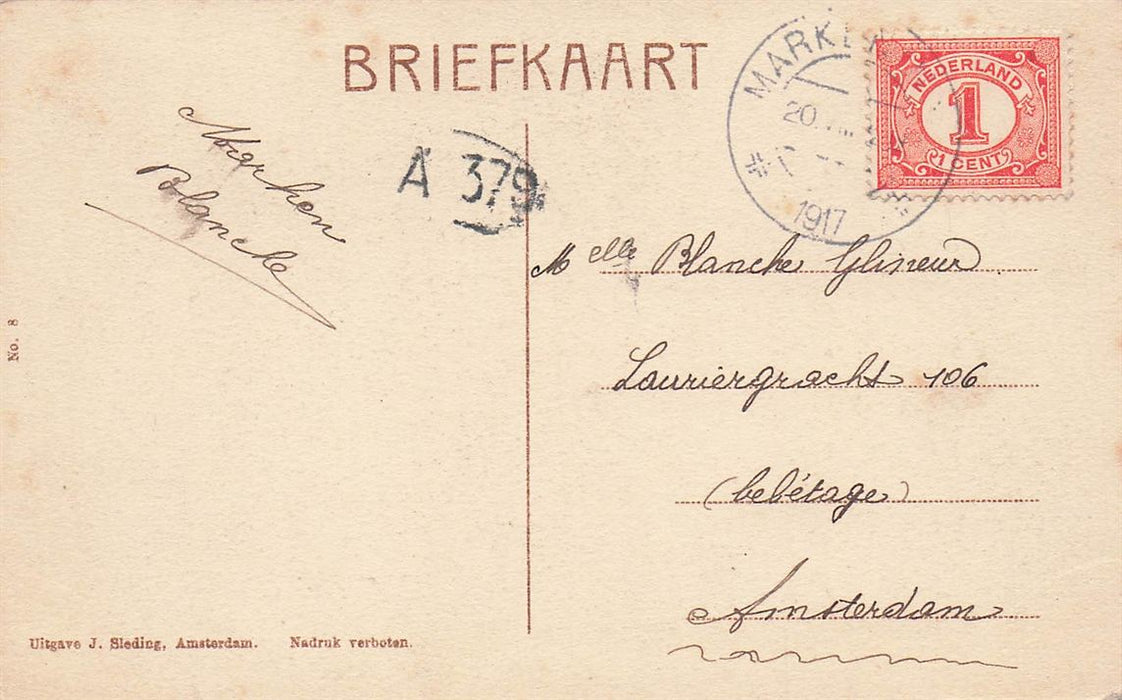 BRIEFKAART
MARKEN
20
1917
NEDERLAND
1
1 CENT
A 379
Marken
Blanche
Melle Blanche Glineur
Lauriergracht 106
(belétage)
Amsterdam
No. 8
Uitgave J. Sleding, Amsterdam. Nadruk verboten.